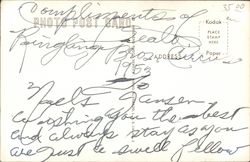 Compliments of
35 00
PHOTO POST CARD
Kodak
PLACE
STAMP
HERE
Paper
Ringling Bros Circus
ADDRESS
1953
Niels Hansen
Wishing you the best
and always stay as you
are just a swell fellow